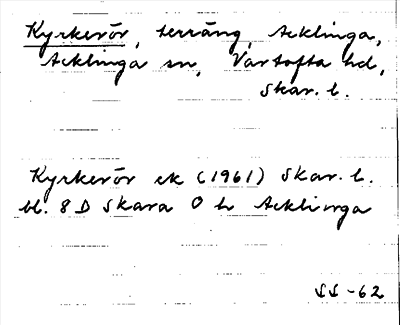 Kyrkerör, terräng, Acklinga,
Acklinga sn, Vartofta hd,
Skar. l.
Kyrkerör ek (1961) Skar. l.
bl. 8 D Skara O h Acklinga
SS-62